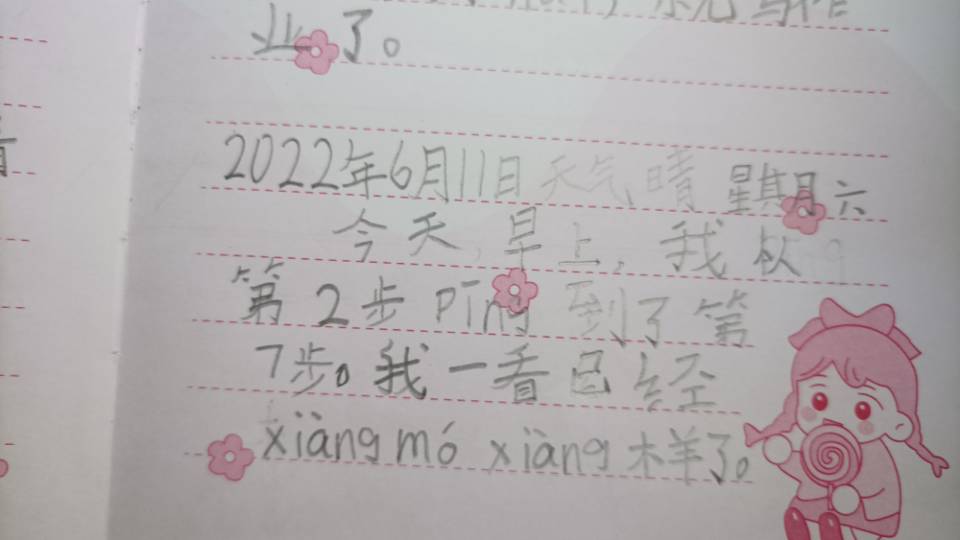 写作
业了。
2022年6月11日天气晴 星期六
今天,早上,我从
第2步pīng到了第
7步。我一看已经
xiàng mó xiàng 样了。